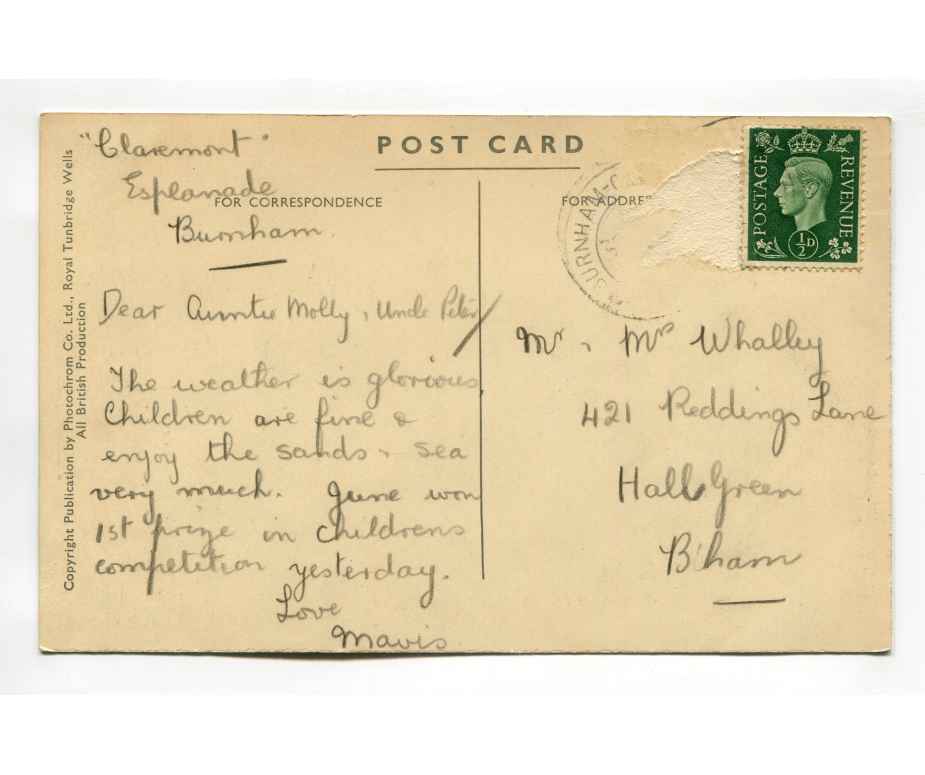 POST CARD
"Claremont"
Esplanade
Burnham.
FOR CORRESPONDENCE
Dear Auntie Molly, Uncle Peter
The weather is glorious
Children are fine &
enjoy the sands & sea
very much. June won
1st prize in childrens
competition yesterday.
Love
Mavis
FOR ADDRE
BURNHAM-O
POSTAGE
REVENUE
½D
Mr & Mrs Whalley
421 Reddings Lane
Hall Green
B'ham
Copyright Publication by Photochrom Co. Ltd., Royal Tunbridge Wells
All British Production